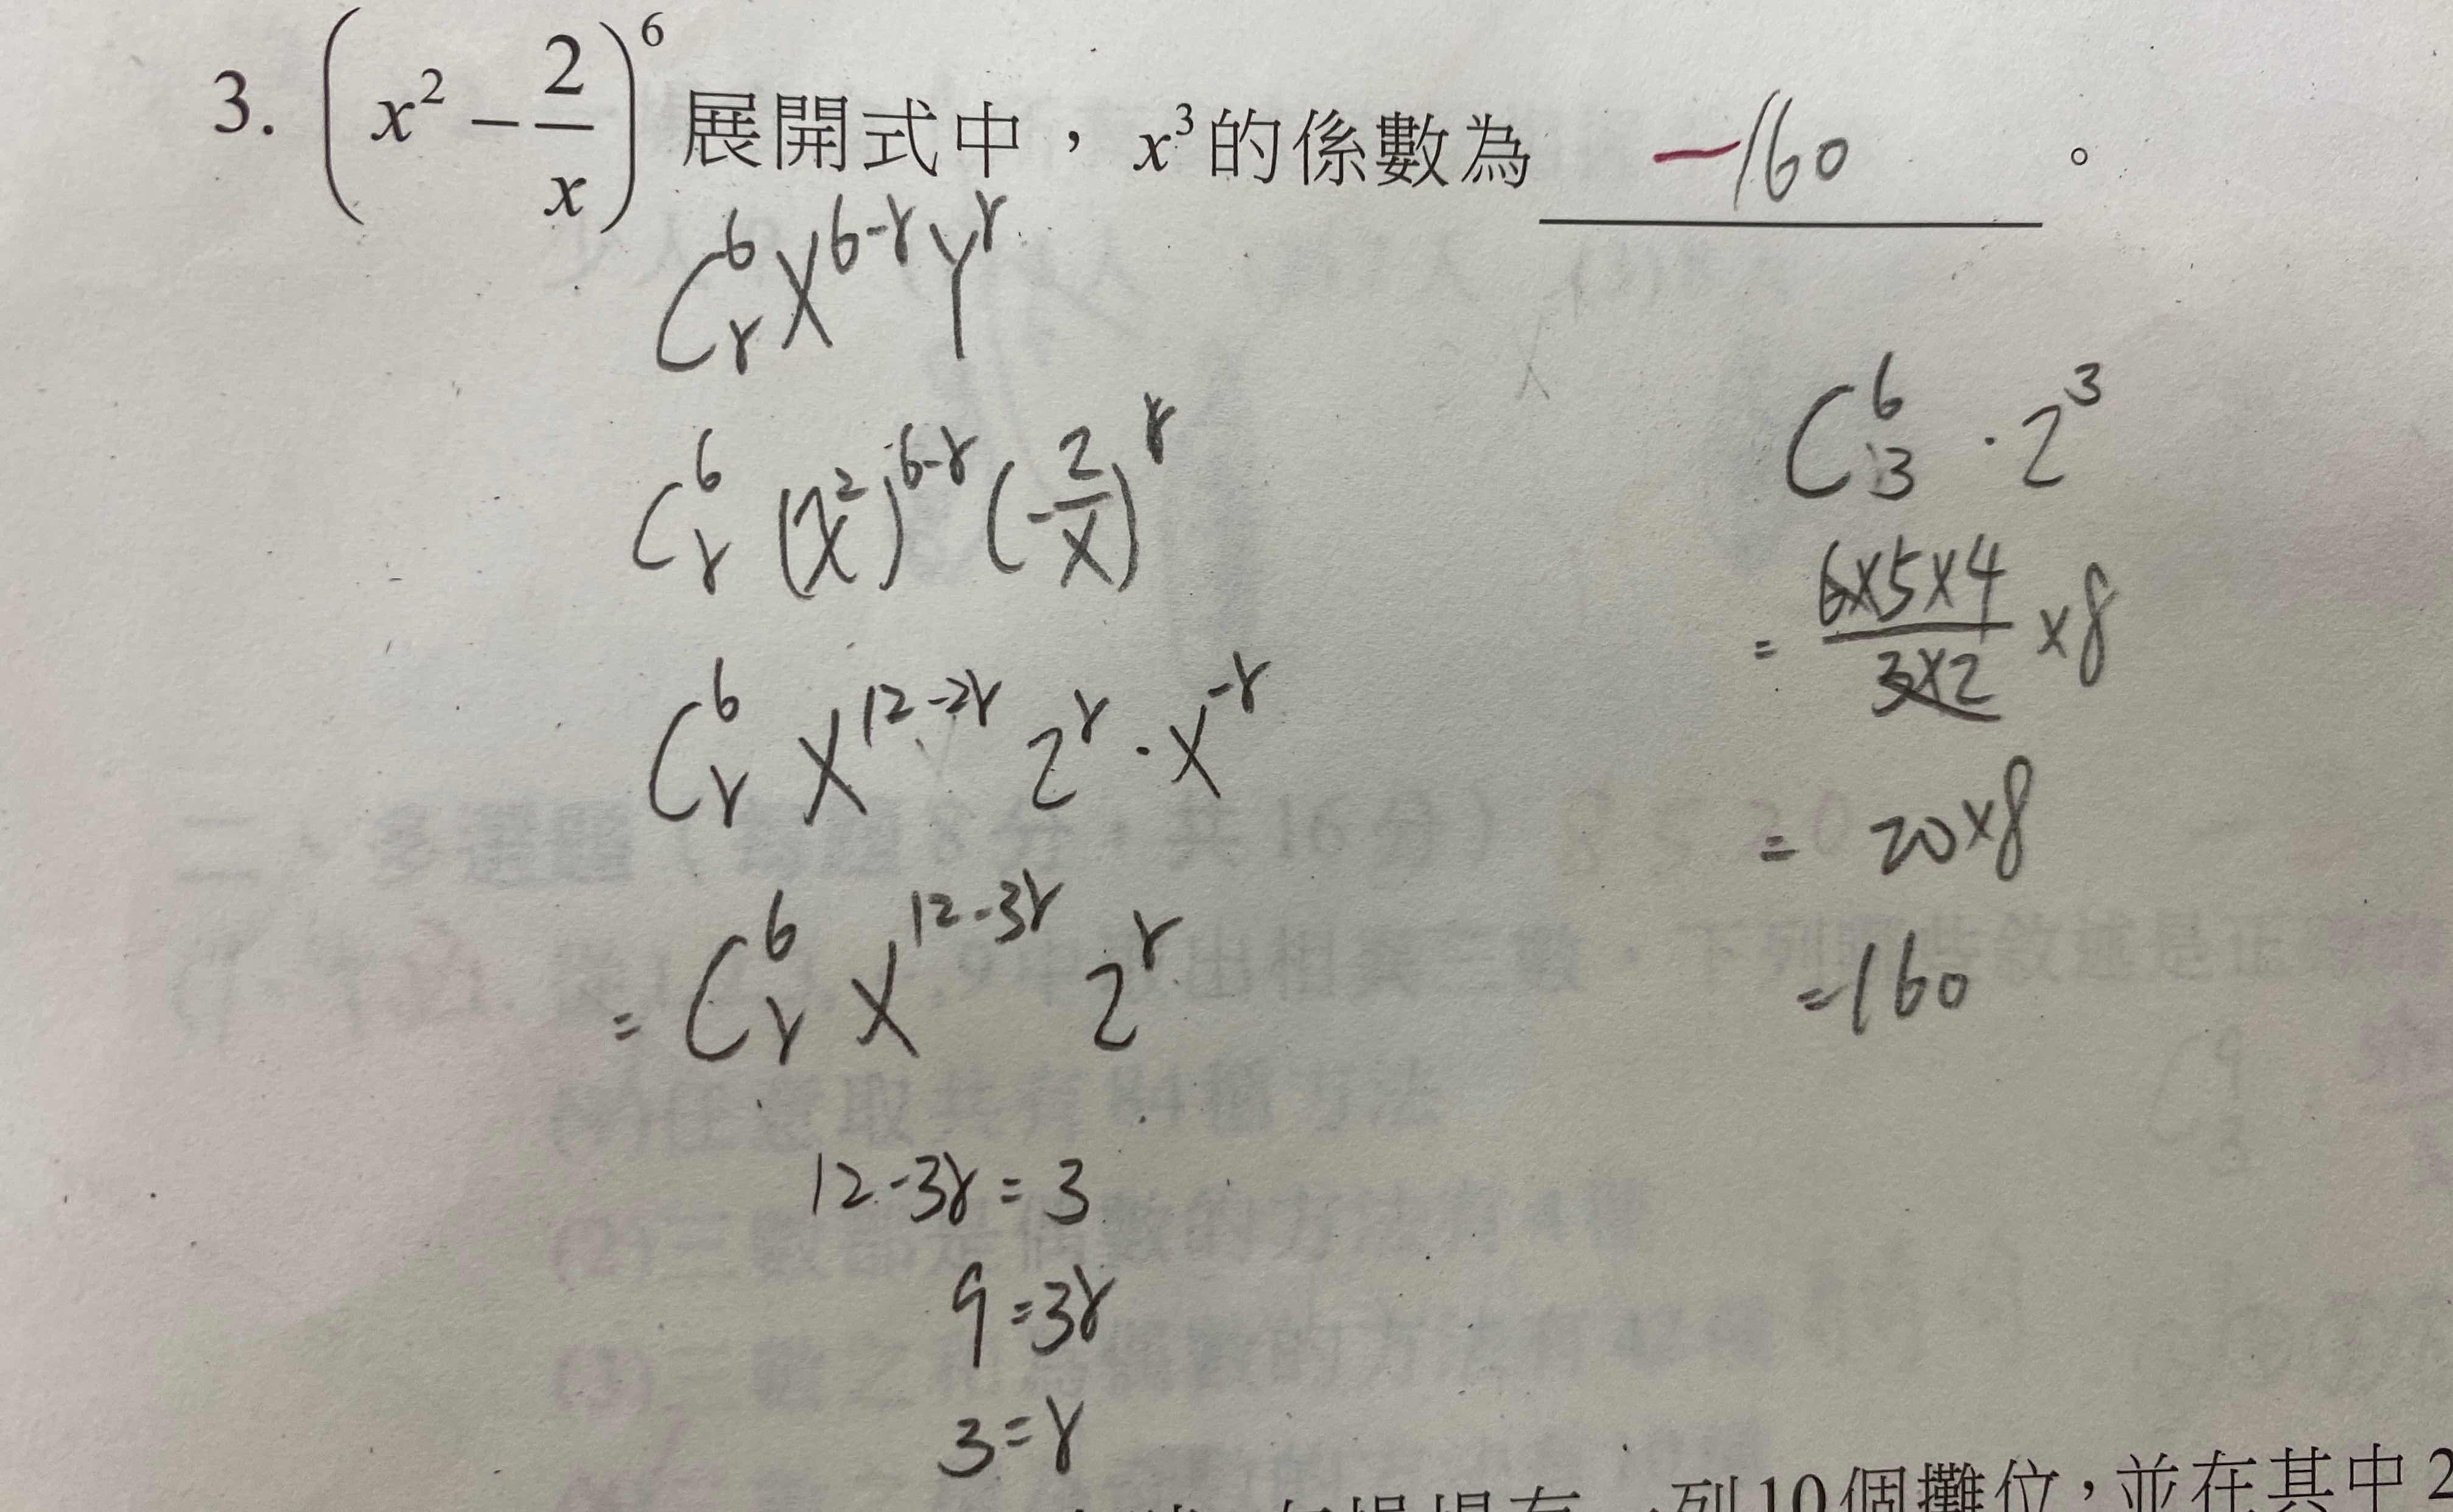 3. (x² − 2/x)⁶ 展開式中，x³的係數為 −160 。
C⁶ᵣ X⁶⁻ʳ Yʳ
C⁶ᵣ (x²)⁶⁻ʳ (-2/x)ʳ
C⁶ᵣ X¹²⁻²ʳ 2ʳ · X⁻ʳ
= C⁶ᵣ X¹²⁻³ʳ 2ʳ
12-3r = 3
9 = 3r
3 = r
C⁶₃ · 2³
= 6×5×4/3×2 ×8
= 20×8
=160
一列10個攤位，並在其中2